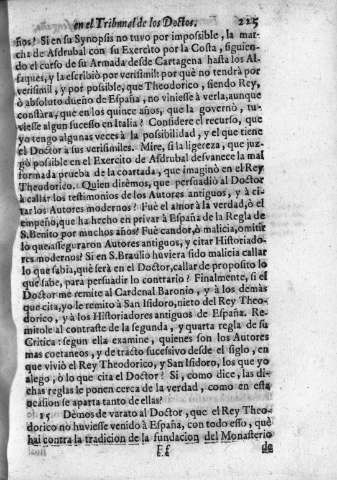 en el Tribunal de los Doctos. 225
ños? Si en su Synopsis no tuvo por impossible, la mar-
cha de Asdrubal con su Exercito por la Costa, siguien-
do el curso de su Armada desde Cartagena hasta los Al-
faques, y la escribiò por verisimil: por què no tendrà por
verisimil, y por possible, que Theodorico, siendo Rey,
ò absoluto dueño de España, no viniesse à verla, aunque
constàra, que en los quince años, que la governò, tu-
viesse algun sucesso en Italia? Considere el recurso, que
yo tengo algunas veces à la possibilidad, y el que tiene
el Doctor a sus verisimiles. Mire, si la ligereza, que juz-
gò possible en el Exercito de Asdrubal desvanece la mal
formada prueba de la coartada, que imaginò en el Rey
Theodorico. Quien dirèmos, que persuadiò al Doctor
à callar los testimonios de los Autores antiguos, y à ci-
tar los Autores modernos? Fuè el amor à la verdad, ò el
empeño, que ha hecho en privar à España de la Regla de
S. Benito por muchos años? Fuè candor, ò malicia, omitir
lo que asseguraron Autores antiguos, y citar Historiado-
res modernos? Si en S. Braulio huviera sido malicia callar
lo que sabia, què serà en el Doctor, callar de proposito lo
que sabe, para persuadir lo contrario? Finalmente, si el
Doctor me remite al Cardenal Baronio, y à los demàs
que cita, yo le remito à San Isidoro, nieto del Rey Theo-
dorico, y à los Historiadores antiguos de España. Re-
mitole al contraste de la segunda, y quarta regla de su
Critica: segun ella examine, quienes son los Autores
mas coetaneos, y de tracto sucesivo desde el siglo, en
que viviò el Rey Theodorico, y San Isidoro, los que yo
alego, ò lo que cita el Doctor? Si, como dice, las di-
chas reglas le ponen cerca de la verdad, como en esta
ocasion se aparta tanto de ellas?
15 Dèmos de varato al Doctor, que el Rey Theo-
dorico no huviesse venido à España, con todo esso, què
hai contra la tradicion de la fundacion del Monasterio
Ff de